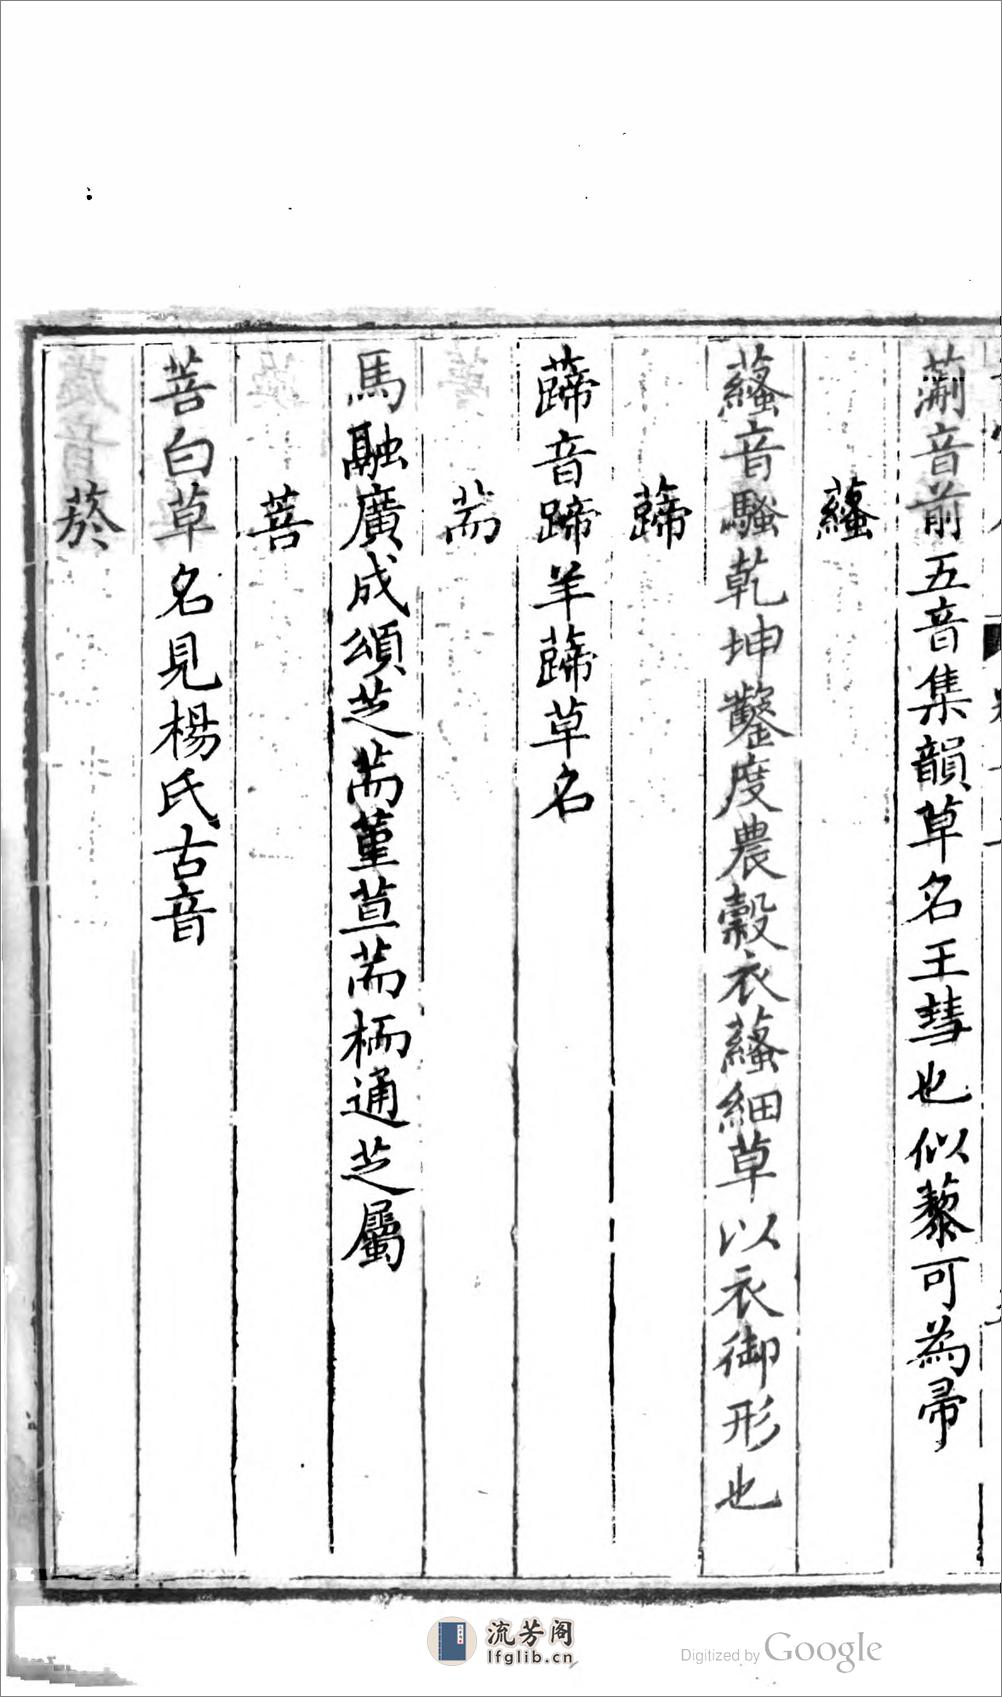 葪音前五音集韻草名王彗也似藜可為帚
蕵
蕵音騷乾坤鑿度農穀衣蕵細草以衣御形也
蹄
蹄音蹄羊蹄草名
荋
馬融廣成頌芝荋菫荁荋栭通芝屬
菩
菩白草名見楊氏古音
菸
流芳阁
lfglib.cn
Digitized by Google